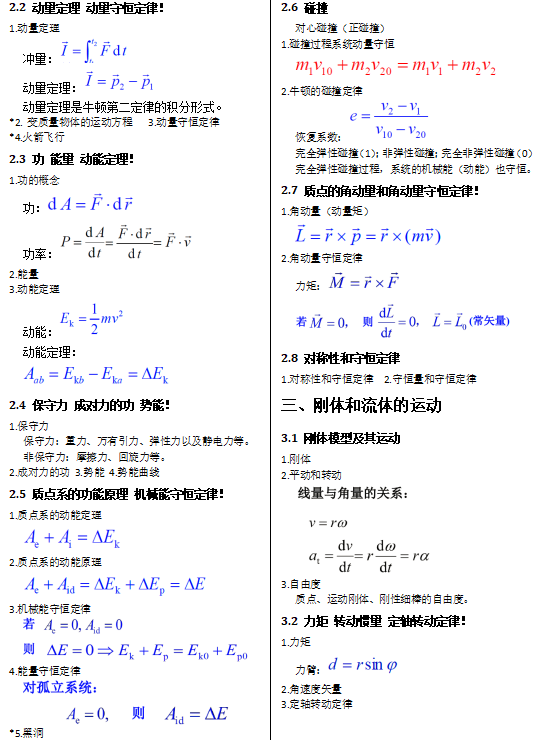 2.2 动量定理 动量守恒定律!
1.动量定理
冲量: I⃗ = ∫_{t₁}^{t₂} F⃗ dt
动量定理: I⃗ = p⃗₂ − p⃗₁
动量定理是牛顿第二定律的积分形式。
*2. 变质量物体的运动方程 3.动量守恒定律
*4.火箭飞行
2.3 功 能量 动能定理!
1.功的概念
功: dA = F⃗ · dr⃗
功率: P = dA/dt = F⃗ · dr⃗/dt = F⃗ · v⃗
2.能量
3.动能定理
动能: E_k = 1/2 mv²
动能定理:
A_ab = E_kb − E_ka = ΔE_k
2.4 保守力 成对力的功 势能!
1.保守力
保守力: 重力、万有引力、弹性力以及静电力等。
非保守力: 摩擦力、回旋力等。
2.成对力的功 3.势能 4.势能曲线
2.5 质点系的功能原理 机械能守恒定律!
1.质点系的动能定理
A_e + A_i = ΔE_k
2.质点系的功能原理
A_e + A_id = ΔE_k + ΔE_p = ΔE
3.机械能守恒定律
若 A_e = 0, A_id = 0
则 ΔE = 0 ⇒ E_k + E_p = E_k0 + E_p0
4.能量守恒定律
对孤立系统:
A_e = 0, 则 A_id = ΔE
*5.黑洞
2.6 碰撞
对心碰撞（正碰撞）
1.碰撞过程系统动量守恒
m₁v₁₀ + m₂v₂₀ = m₁v₁ + m₂v₂
2.牛顿的碰撞定律
恢复系数: e = (v₂ − v₁)/(v₁₀ − v₂₀)
完全弹性碰撞(1); 非弹性碰撞; 完全非弹性碰撞(0)
完全弹性碰撞过程，系统的机械能（动能）也守恒。
2.7 质点的角动量和角动量守恒定律!
1.角动量（动量矩）
L⃗ = r⃗ × p⃗ = r⃗ × (mv⃗)
2.角动量守恒定律
力矩: M⃗ = r⃗ × F⃗
若 M⃗ = 0, 则 dL⃗/dt = 0, L⃗ = L⃗₀ (常矢量)
2.8 对称性和守恒定律
1.对称性和守恒定律 2.守恒量和守恒定律
三、刚体和流体的运动
3.1 刚体模型及其运动
1.刚体
2.平动和转动
线量与角量的关系:
v = rω
a_t = dv/dt = r dω/dt = rα
3.自由度
质点、运动刚体、刚性细棒的自由度。
3.2 力矩 转动惯量 定轴转动定律!
1.力矩
力臂: d = r sin φ
2.角速度矢量
3.定轴转动定律